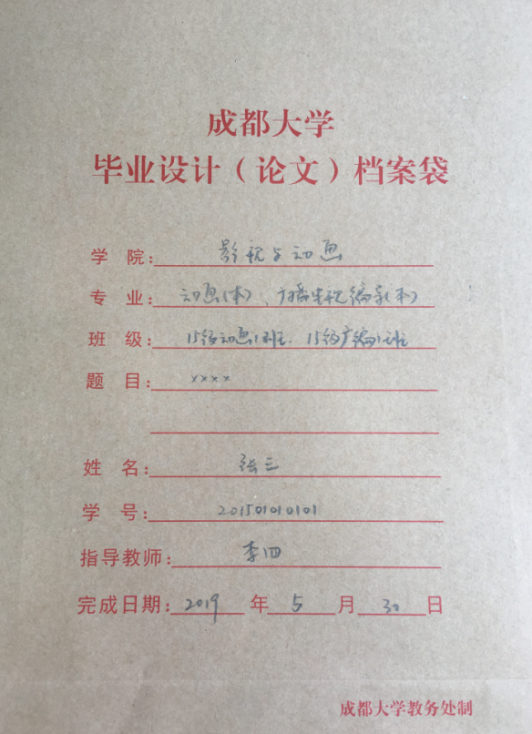 成都大学
毕业设计(论文)档案袋
学 院: 影视与动画
专 业: 动画(本)、广播电视编导(本)
班 级: 15级动画1班、15级广编1班
题 目: xxxx
姓 名: 张三
学 号: 201501010101
指导教师: 李四
完成日期: 2019 年 5 月 30 日
成都大学教务处制